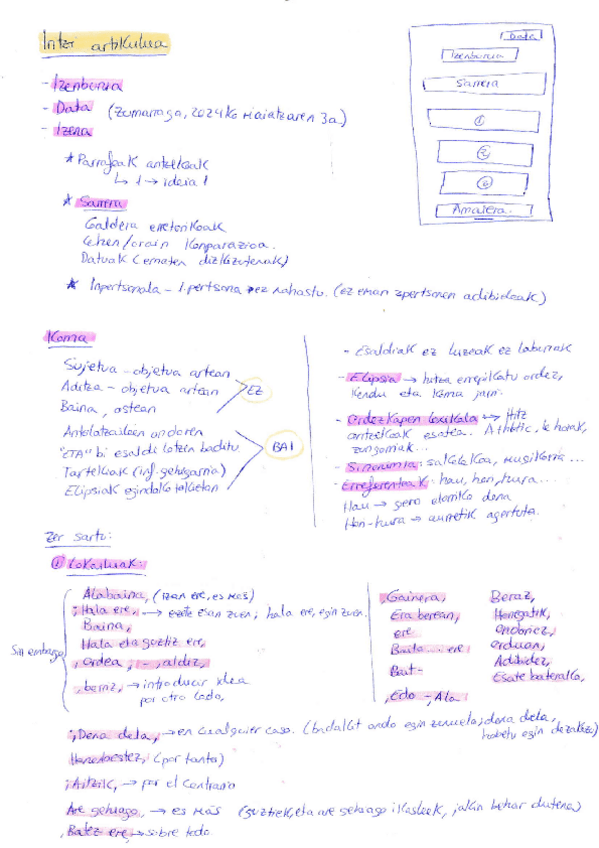 Iritzi artikulua
Data
Izenburua
Sarrera
①
②
③
Amaiera.
- Izenburua
- Data (Zumarraga, 2024ko Maiatzaren 3a)
- Izena
* Parrafoak antzekoak
↳ 1 → ideia 1
* Sarrera
Galdera erretorikoak
Lehen/orain konparazioa.
Datuak (ematen dizkizutenak)
* Inpertsonala - 1. pertsona ez nahastu. (ez eman 3 pertsonen adibideak)
Koma
Sujetua - objetua artean
Aditza - objetua artean
Baina, ostean
EZ
Antolatzaileen ondoren
"ETA" bi esaldi lotzen baditu
Tartekoak (inf. gehigarria)
Elipsiak egindako tokietan
BAI
- Esaldiak ez luzeak ez laburrak
- Elipsia → hitza errepikatu ordez,
kendu eta koma jarri.
- Ordezkapen lexikala → Hitz
antzekoak esatea. Athletic, lehoiak,
zurigorriak...
- Sinonimia: sakelekoa, mugikorra...
- Erreferenteak: hau, hori, hura...
Hau → gero etorriko dena
Hori-hura → aurretik agertuta.
Zer sartu:
① Lokailuak:
Sin embargo
Alabaina, (izan ere, es más)
; Hala ere, → ezetz esan zuen; hala ere, egin zuen.
Baina,
Hala eta guztiz ere,
, ordea ; - , aldiz,
, berriz, → introducir idea
por otro lado,
, Gainera,
Era berean,
ere
Baita ... ere
Bait-
, Edo - , Ala
Beraz,
Horregatik,
ondorioz,
orduan,
Adibidez,
Esate baterako,
; Dena dela, → en cualquier caso. (badakit ondo egin zenuela; dena dela,
hobetu egin dezakezu)
Honenbestez, (por tanto)
; Aitzitik, → por el contrario
Are gehiago, → es más (guztiek, eta are gehiago ikasleek, jakin behar dutena)
, Batez ere, → sobre todo